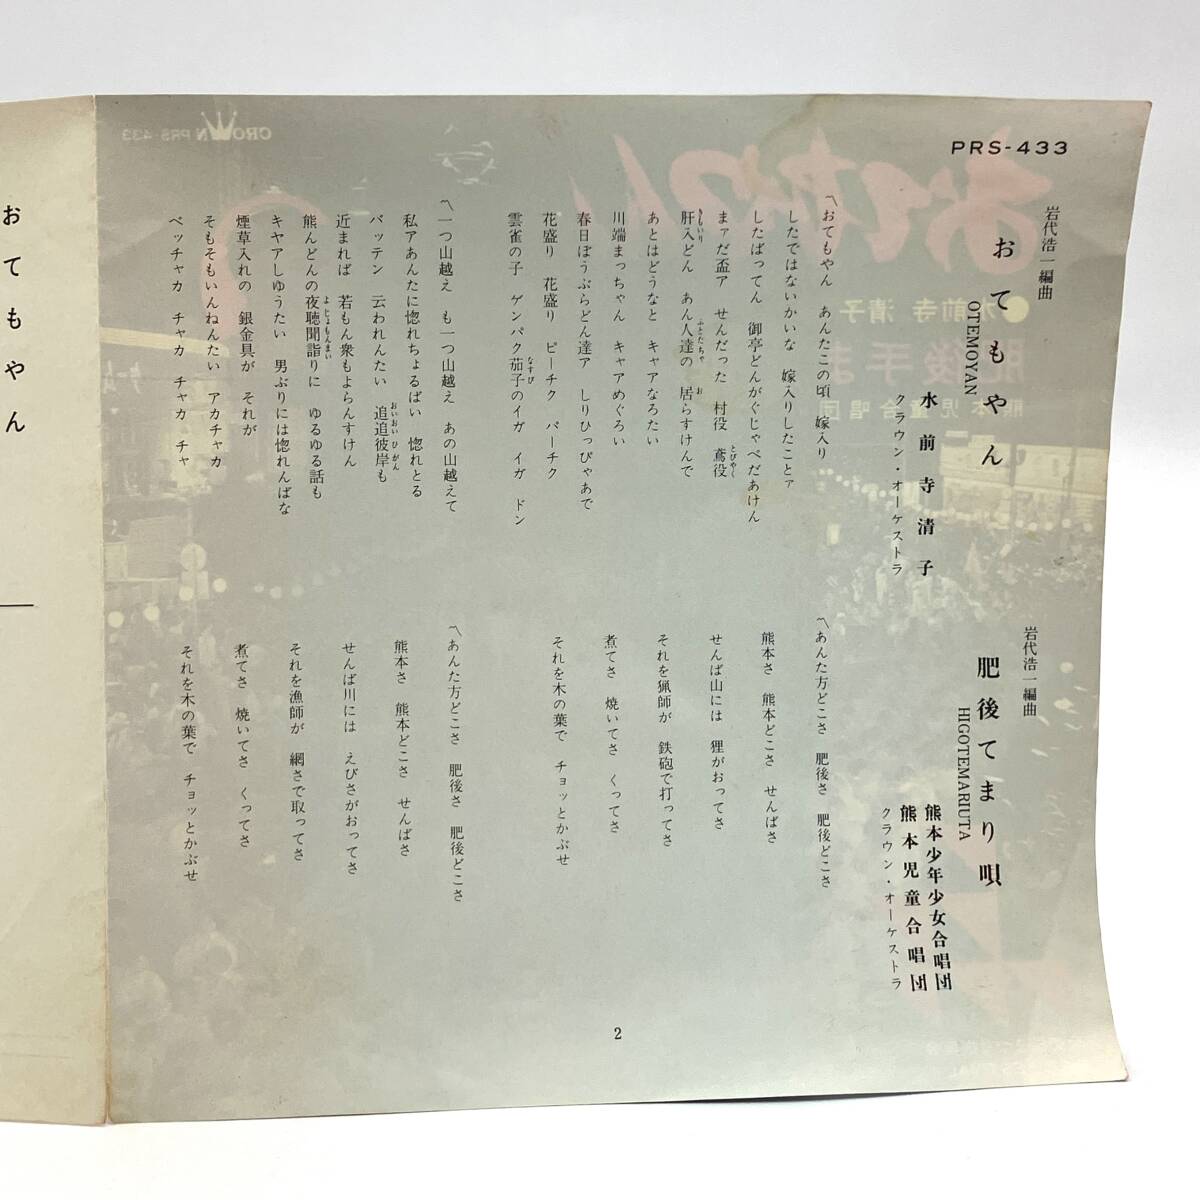 PRS-433
岩代浩一編曲
おてもやん
OTEMOYAN
水前寺清子
クラウン・オーケストラ
〽おてもやん　あんたこの頃　嫁入り
したではないかいな　嫁入りしたことァ
したばってん　御亭どんがぐじゃぺだあけん
まァだ盃ア　せんだった　村役　鳶役
とびやく
肝入どん　あん人達の　居らすけんで
きもいり　ふとたちゃ　お
あとはどうなと　キャアなろたい
川端まっちゃん　キャアめぐろい
春日ぼうぶらどん達ア　しりひっぴゃあで
花盛り　花盛り　ピーチク　パーチク
雲雀の子　ゲンパク茄子のイガ　イガ　ドン
なすび
〽一つ山越え　も一つ山越え　あの山越えて
私アあんたに惚れちょるばい　惚れとる
バッテン　云われんたい　追追彼岸も
おいおいひがん
近まれば　若もん衆もよらんすけん
熊んどんの夜聴聞詣りに　ゆるゆる話も
よじょもんまい
キヤアしゆうたい　男ぶりには惚れんばな
煙草入れの　銀金具が　それが
そもそもいんねんたい　アカチャカ
ベッチャカ　チャカ　チャカ　チャ
岩代浩一編曲
肥後てまり唄
HIGOTEMARIUTA
熊本少年少女合唱団
熊本児童合唱団
クラウン・オーケストラ
〽あんた方どこさ　肥後さ　肥後どこさ
熊本さ　熊本どこさ　せんばさ
せんば山には　狸がおってさ
それを猟師が　鉄砲で打ってさ
煮てさ　焼いてさ　くってさ
それを木の葉で　チョッとかぶせ
〽あんた方どこさ　肥後さ　肥後どこさ
熊本さ　熊本どこさ　せんばさ
せんば川には　えびさがおってさ
それを漁師が　網さで取ってさ
煮てさ　焼いてさ　くってさ
それを木の葉で　チョッとかぶせ
2
おてもやん
CROWN PRS-433
おてもやん
●水前寺清子
熊本児童合唱団